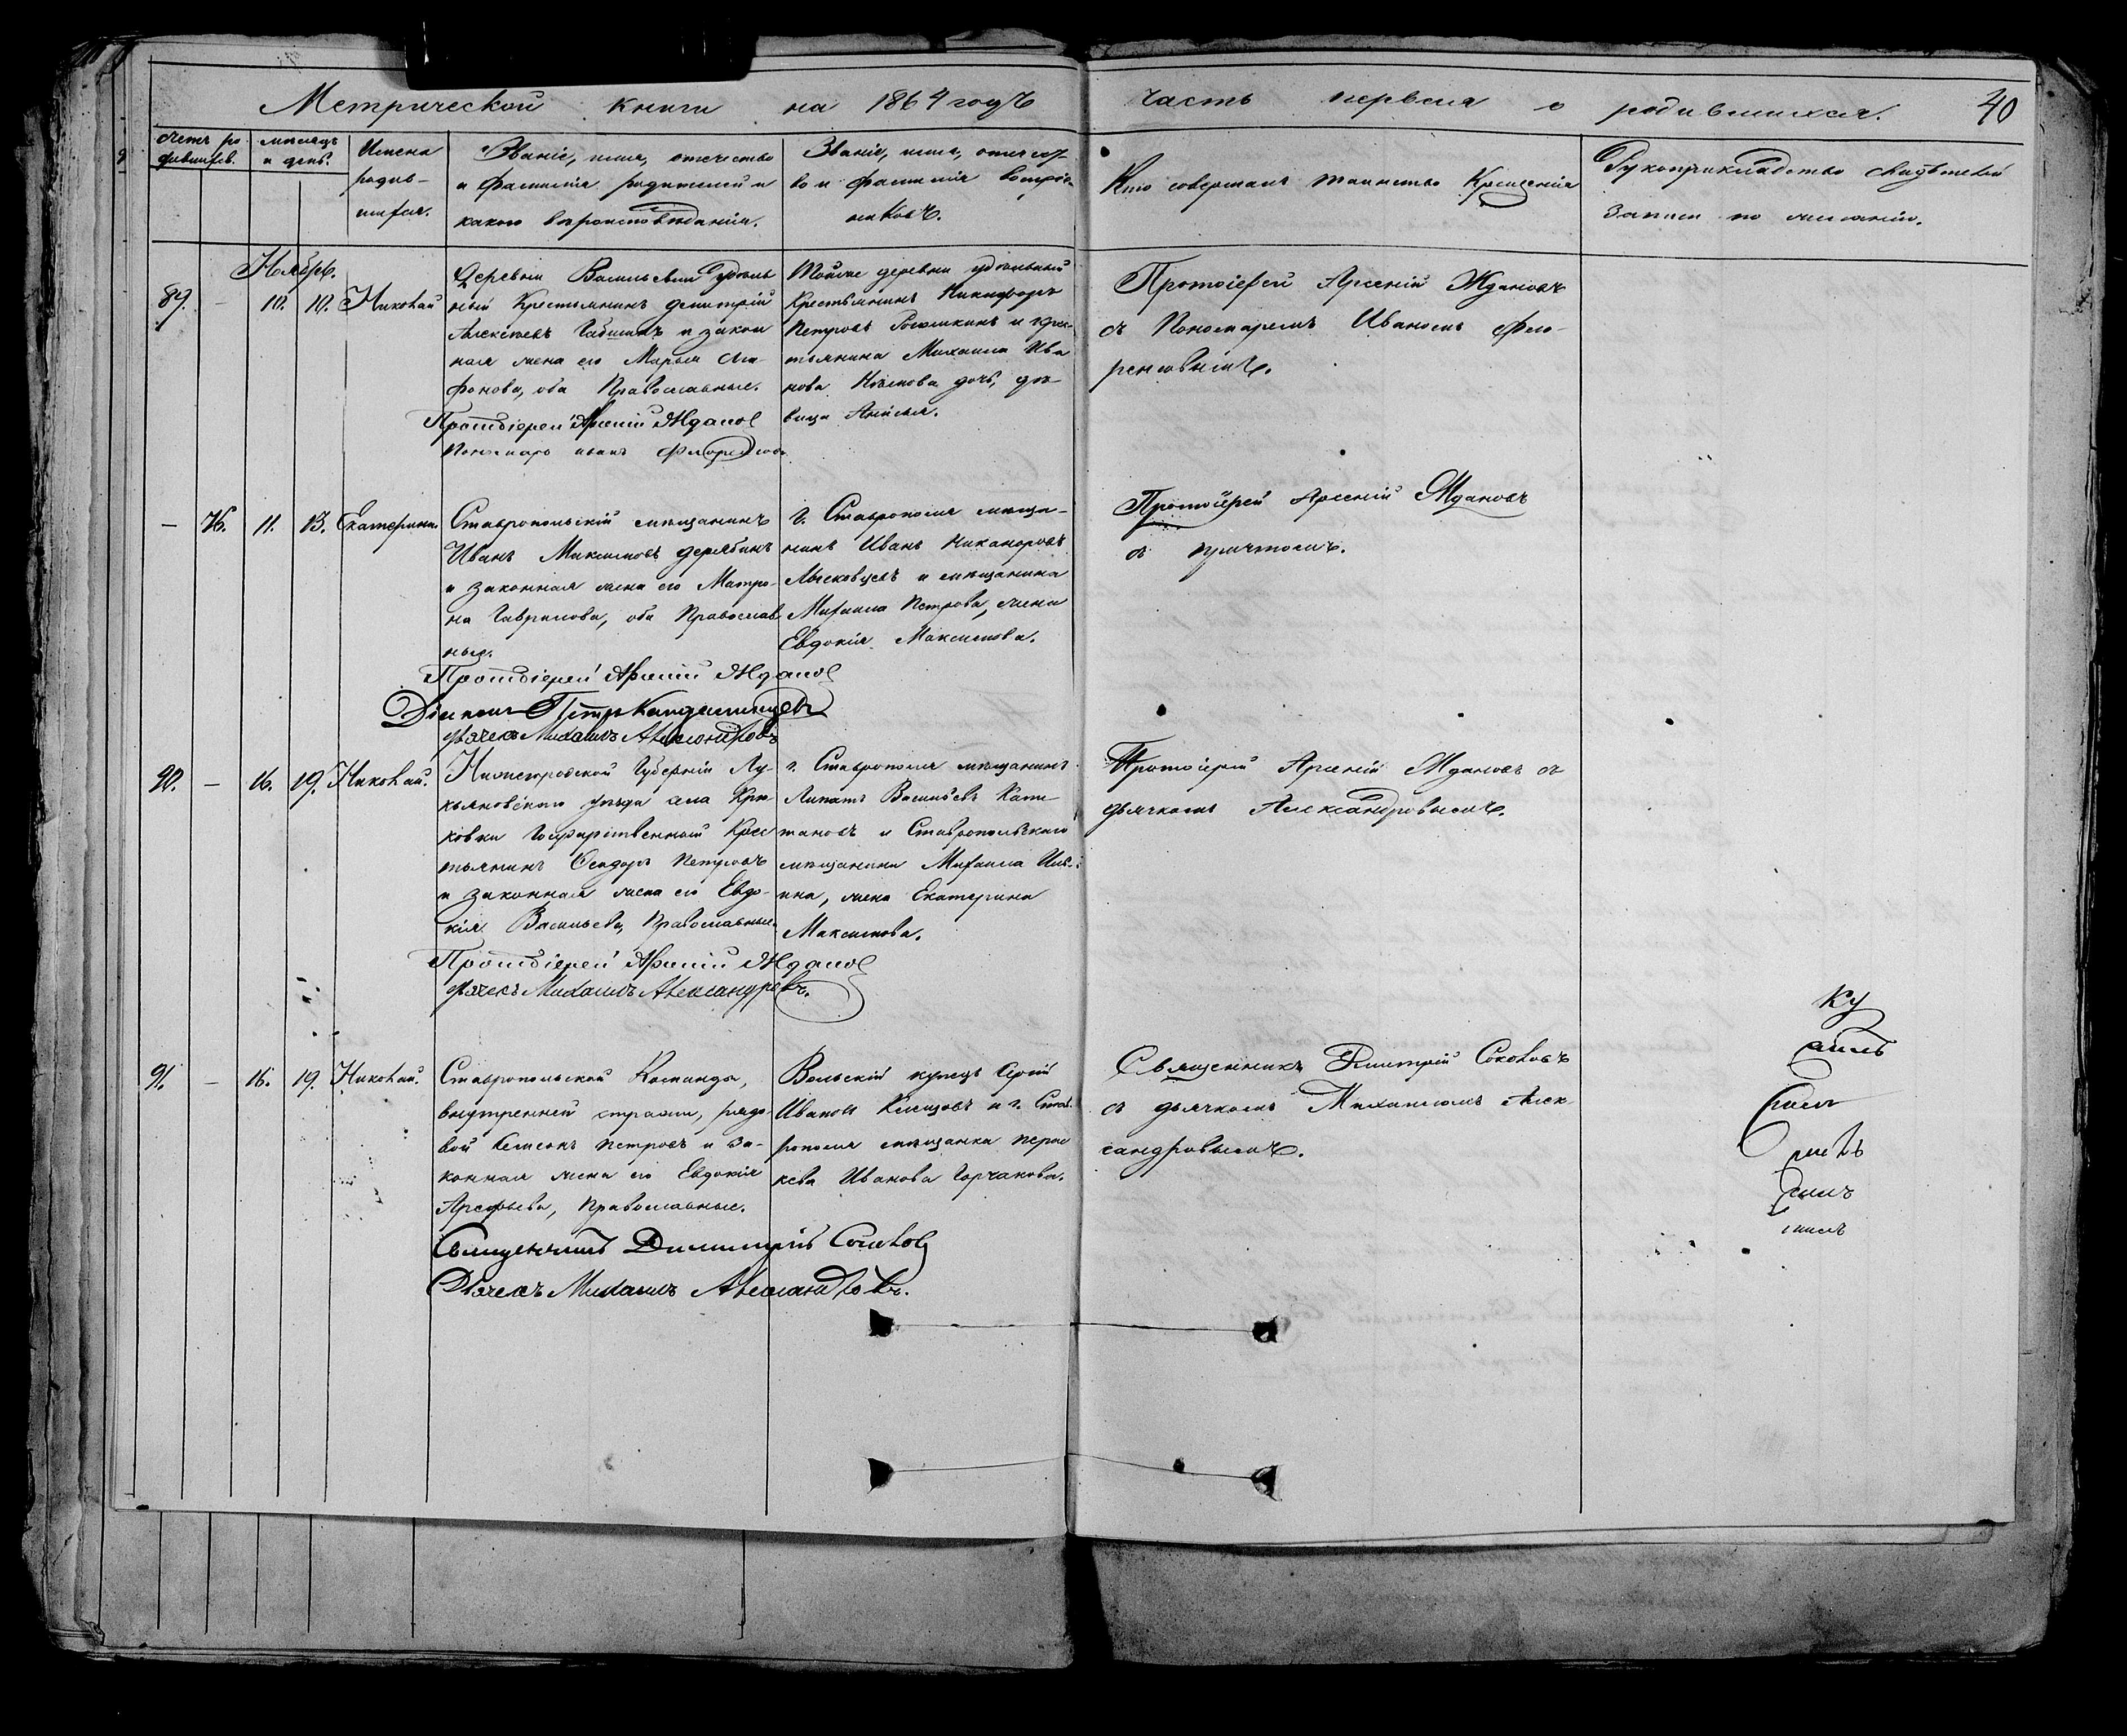 Метрической книги на 1864 годъ
часть первая о родившихся.
40
Счетъ ро-
дившихся.
мѣсяцъ
и день.
Имена
родив-
шихся.
Званіе, имя, отечество
и фамилія родителей и
какого вѣроисповѣданія.
Званіе, имя, отечест-
во и фамилія воспріем-
никовъ.
Кто совершалъ таинство Крещенія
Рукоприкладство свидѣтелей
записи по желанію.
Ноябрь.
89. - 10. 10. Николай
Деревни Васильевки удѣль
ный Крестьянинъ Дмитрій
Алексѣевъ и закон
ная жена его Марья Ага-
фонова, оба Православные.
Протоіерей Арсеній Жданов
Пономарь Иванъ
Тойже деревни удѣльный
Крестьянинъ Никифоръ
Петровъ и крес-
тьянина Михаила Ива
нова дочь, дѣ-
вица Анисья.
Протоіерей Арсеній Ждановъ
съ Пономаремъ Иваномъ Фло-
ренсовымъ.
- 76. 11. 13. Екатерина
Ставропольскій мѣщанинъ
Иванъ Максимовъ Дерябинъ
и законная жена его Матро-
на Гаврилова, оба Православ
ные.
Протоіерей Арсеній Жданов
Діаконъ Петръ
Дьячекъ Михаилъ Александровъ
г. Ставрополя мѣща-
нинъ Иванъ Никаноровъ
Лысковцевъ и мѣщанина
Михаила Петрова, жена
Евдокія Максимова.
Протоіерей Арсеній Ждановъ
съ причтомъ.
90. - 16. 19. Николай.
Нижегородской Губерніи Лу-
кьяновскаго уѣзда села Крю-
ковки Государственный Крес
тьянинъ Ѳеодоръ Петровъ
и законная жена его Евдо-
кія Васильева, Православные.
Протоіерей Арсеній Жданов
Дьячекъ Михаилъ Александровъ.
г. Ставрополя мѣщанинъ
Липатъ Васильевъ Капи-
тановъ и Ставропольскаго
мѣщанина Михаила Иль-
ина, жена Екатерина
Максимова.
Протоіерей Арсеній Ждановъ съ
дьячкомъ Александровымъ.
91. - 16. 19. Николай.
Ставропольской Команды,
внутренней стражи, рядо
вой Петровъ и за-
конная жена его Евдокія
Арефьева, Православные.
Священникъ Димитрій Соколов
Дьячекъ Михаилъ Александровъ.
Вольскій купецъ Сергій
Ивановъ и г. Став-
рополя мѣщанка Парас
кева Иванова Горчакова.
Священникъ Дмитрій Соколовъ
съ дьячкомъ Михаиломъ Алек-
сандровымъ.